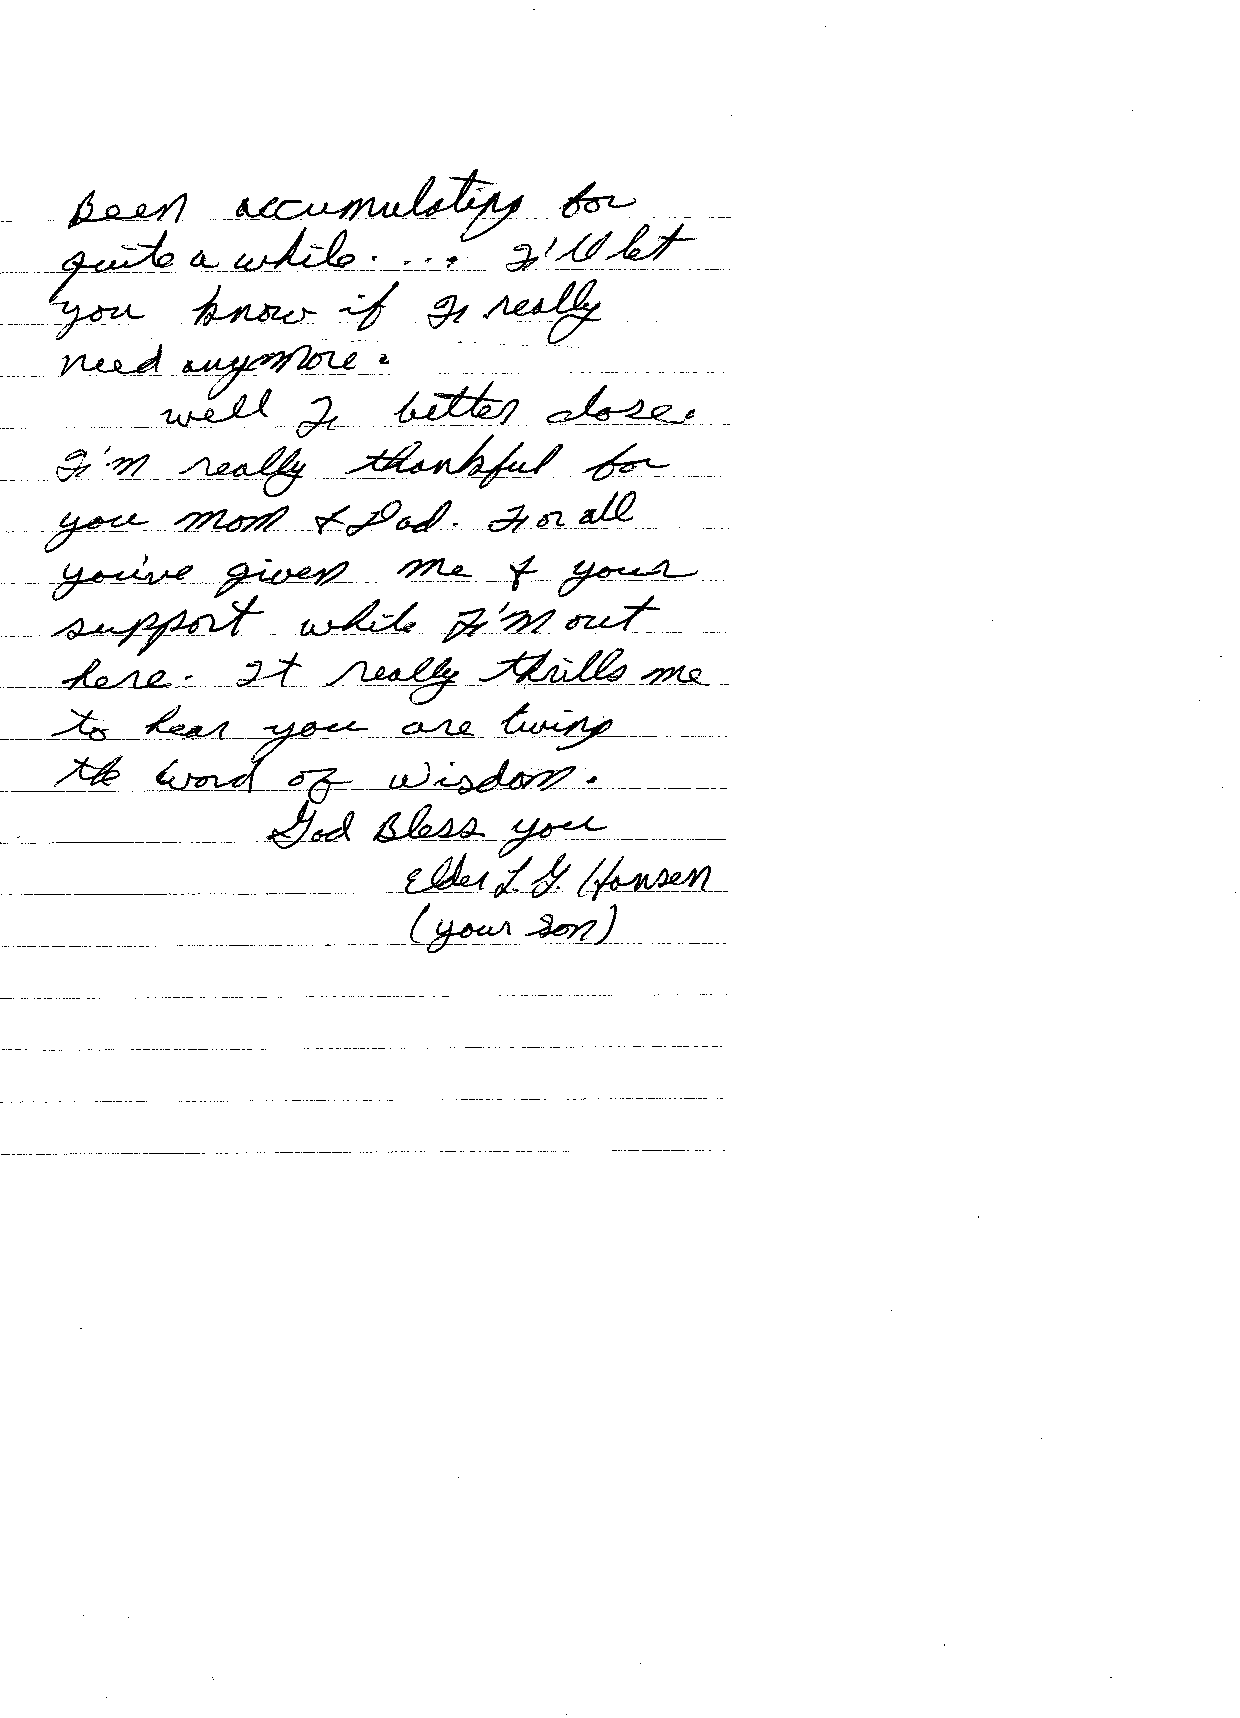 Been accumulating for
quite a while. ... I'll let
you know if I really
need anymore.
well I better close.
I'm really thankful for
you mom & Dad. For all
you've given me & your
support while I'm out
here. It really thrills me
to hear you are living
the word of wisdom.
God Bless you
Elder L G Hansen
(your son)